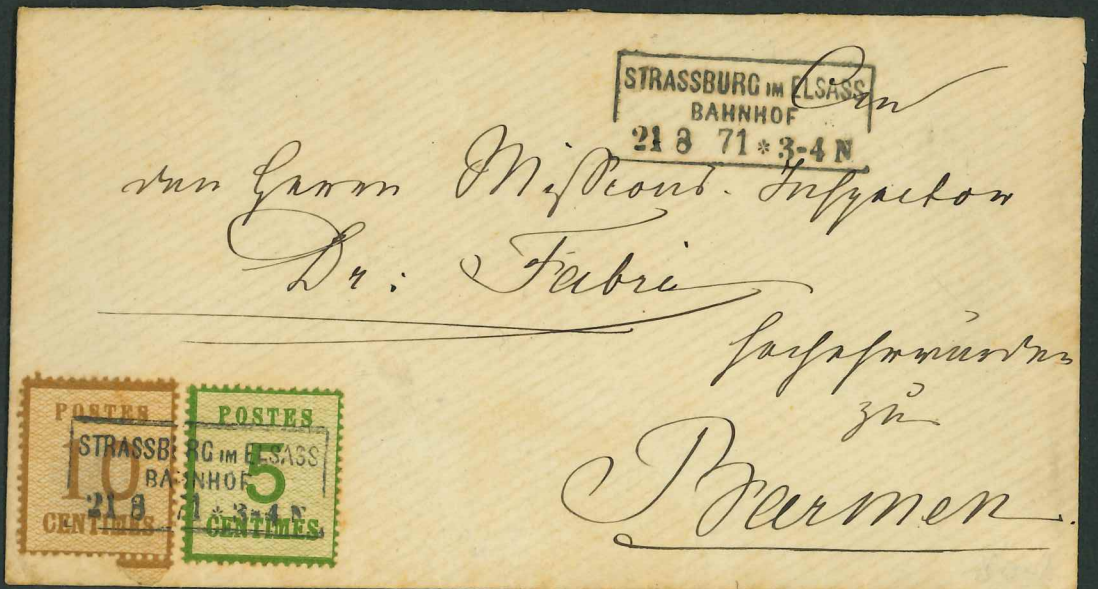 STRASSBURG IM ELSASS
BAHNHOF
21 8 71 * 3-4 N
An
den Herrn Missions-Inspector
Dr: Fabri
Hochehrwürden
zu
Barmen.
POSTES
10
CENTIMES
POSTES
5
CENTIMES
STRASSBURG IM ELSASS
BAHNHOF
21 8 71 * 3-4 N